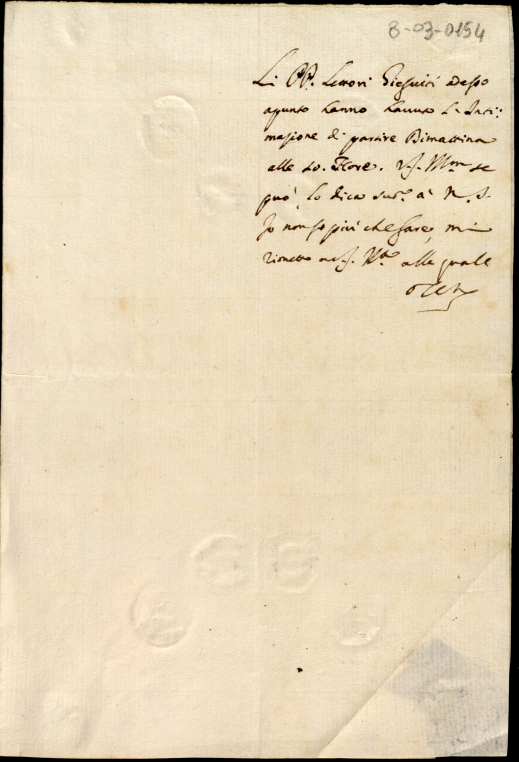 8-03-0154
Li PP. Lettori Giesuiti adesso
apunto hanno havuto l'Inti:
mazione di partire Dimattina
alle 10. Hore. V. S. Ill.ma se
può, lo dica sub.o à N. S.
Io non so più che fare, mi
rimetto a V. S. Ill.ma alla quale